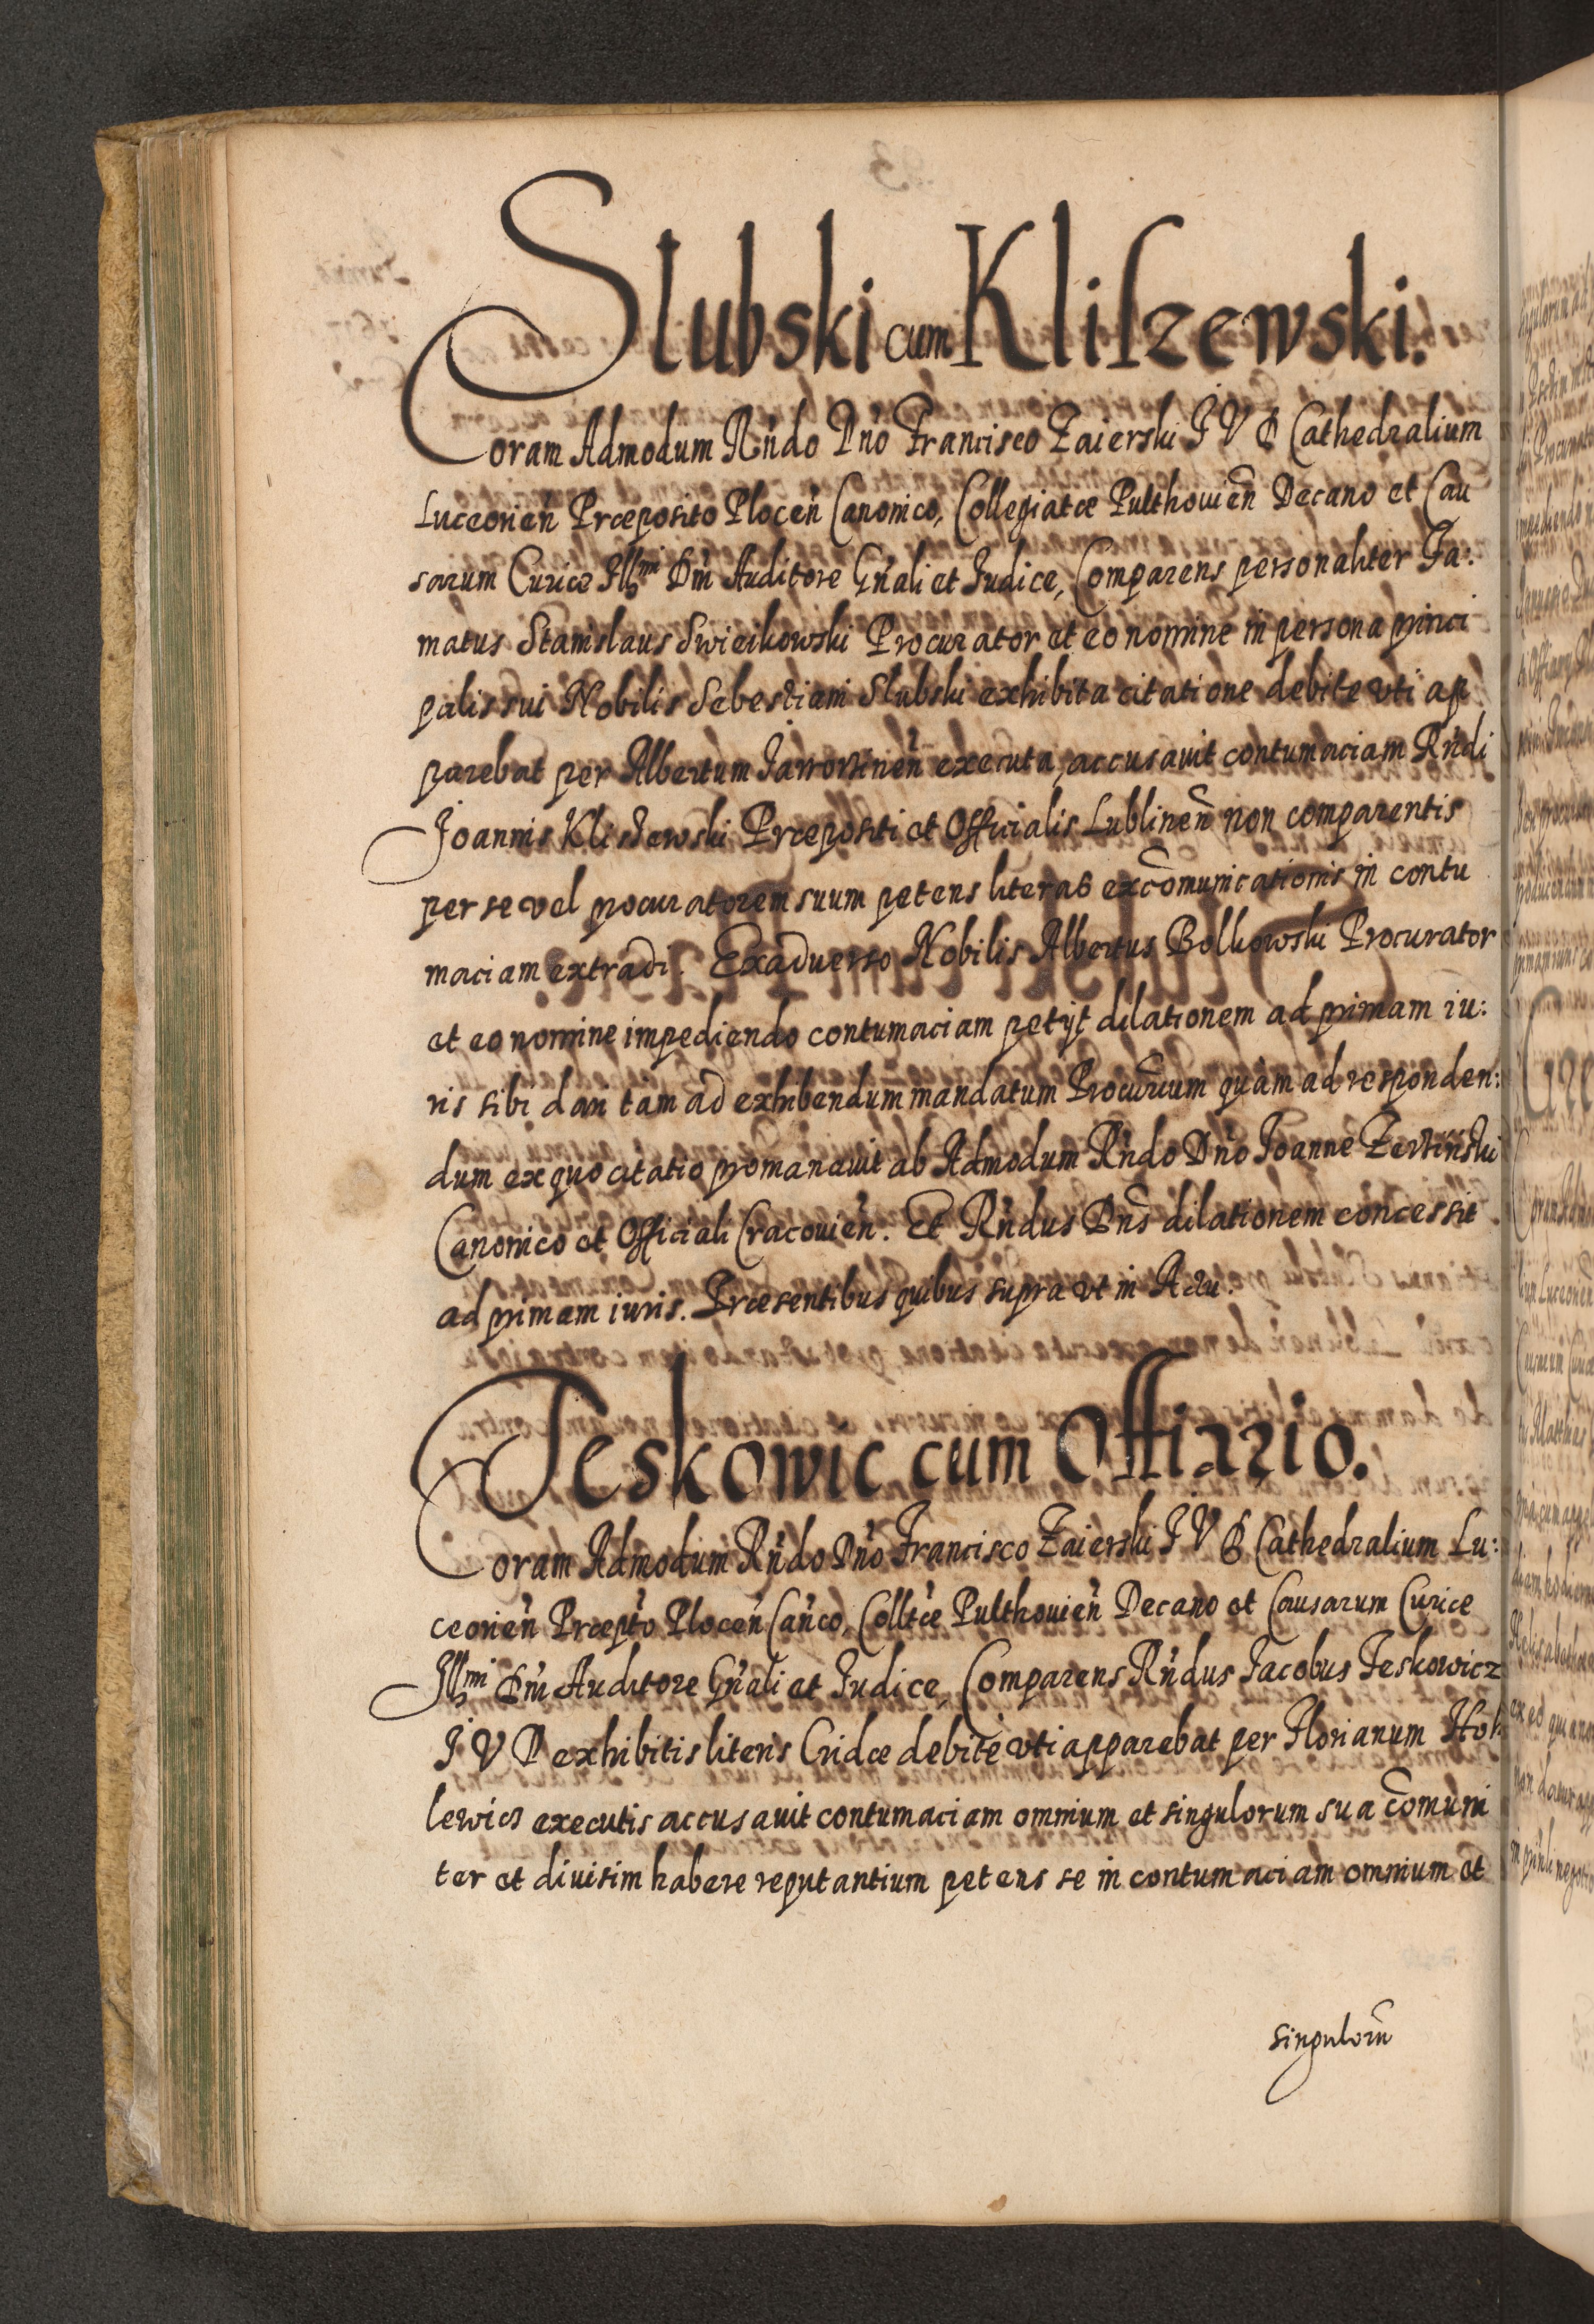 Slubski cum Kliszewski.
Coram Admodum Rńdo Dńo Francisco Zaierski I V D Cathedralium
Luceorień Præposito Ploceń Canonico, Collegiatæ Pulthouień Decano et Cau
sarum Curiæ Illmi Dńi Auditore Gńali et Iudice, Comparens personaliter Fa:
matus Stanislaus Swiecikowski Procurator et eo nomine in persona princi
palis sui Nobilis Sebestiani Slubski exhibita citatione debite vti ap
parebat per Albertum executa, accusauit contumaciam Rńdi
Joannis Kliszewski Præpositi et Officialis Lublineń non comparentis
per se vel procuratorem suum petens literas excōmunicationis in contu
maciam extradi. Exaduerso Nobilis Albertus Bolkowski Procurator
et eo nomine impediendo contumaciam petijt dilationem ad primam iu:
ris sibi dari tam ad exhibendum mandatum Procurium quàm ad responden:
dum ex quo citatio promanauit ab Admodum Rńdo Dńo Joanne
Canonico et Officiali Cracouień. Et Rńdus Dńs dilationem concessit
ad primam iuris. Præsentibus quibus supra vt in Actu.
Jeskowic cum Offiario.
Coram Admodum Rńdo Dńo Francisco Zaierski I V D Cathedralium Lu:
ceorień Præpto Ploceń Cańco, Colltæ Pulthouień Decano et Causarum Curiæ
Illmi Dńi Auditore Gńali et Iudice, Comparens Rńdus Jacobus Jeskowicz
I V D exhibitis literis Cridæ debite vti apparebat per Florianum
lewicz executis accusauit contumaciam omnium et singulorum sua cōmuni
ter et diuisim habere reputantium petens se in contumaciam omnium et
singulorū